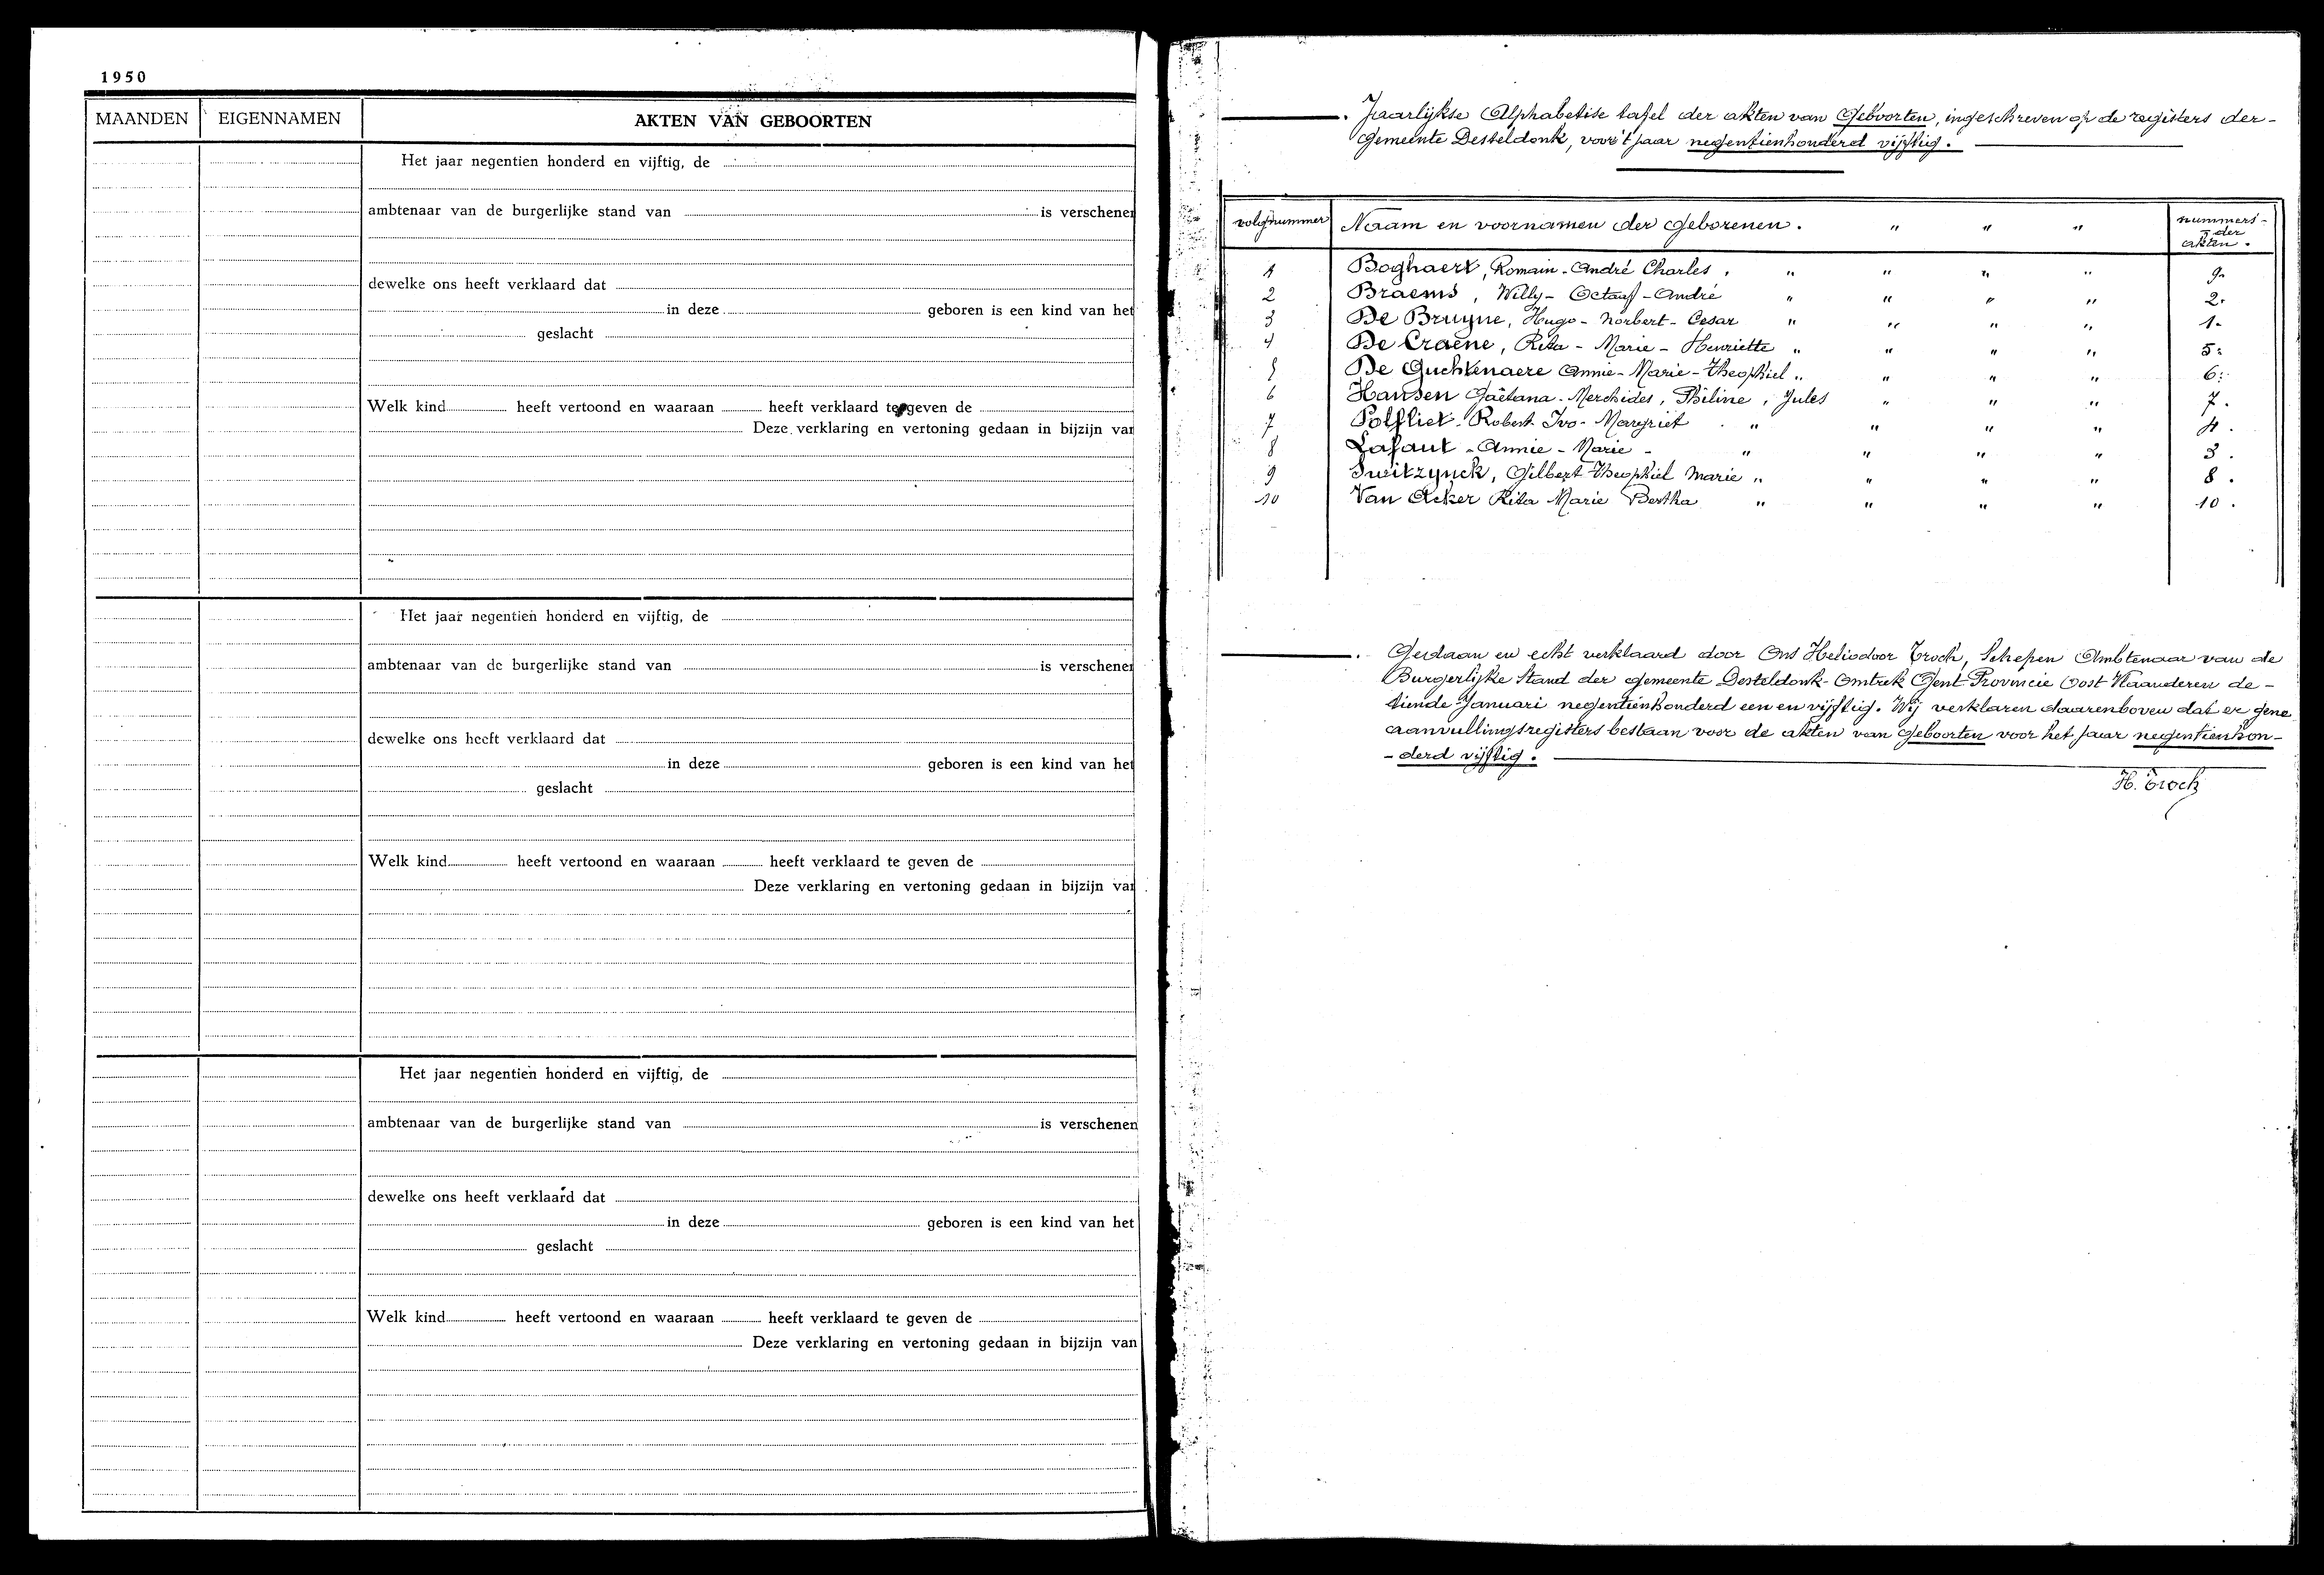 1950
MAANDEN EIGENNAMEN AKTEN VAN GEBOORTEN
Het jaar negentien honderd en vijftig, de
ambtenaar van de burgerlijke stand van is verschenen
dewelke ons heeft verklaard dat
in deze geboren is een kind van het
geslacht
Welk kind heeft vertoond en waaraan heeft verklaard te geven de
Deze verklaring en vertoning gedaan in bijzijn van
Het jaar negentien honderd en vijftig, de
ambtenaar van de burgerlijke stand van is verschenen
dewelke ons heeft verklaard dat
in deze geboren is een kind van het
geslacht
Welk kind heeft vertoond en waaraan heeft verklaard te geven de
Deze verklaring en vertoning gedaan in bijzijn van
Het jaar negentien honderd en vijftig, de
ambtenaar van de burgerlijke stand van is verschenen
dewelke ons heeft verklaard dat
in deze geboren is een kind van het
geslacht
Welk kind heeft vertoond en waaraan heeft verklaard te geven de
Deze verklaring en vertoning gedaan in bijzijn van
Jaarlijkse Alphabetise tafel der akten van Geboorten, ingeschreven op de registers der-
Gemeente Desteldonk, voor 't jaar negentienhonderd vijftig.
volgnummer Naam en voornamen der geborenen. " " " nummers- der akten.
1 Boghaert, Romain-André Charles, " " " " 9.
2 Braems, Willy-Octaaf-André " " " " 2.
3 De Bruyne, Hugo-Norbert-Cesar " " " " 1.
4 De Craene, Rita-Marie-Henriette " " " " 5.
5 De Guchtenaere Annie-Marie-Theophiel " " " " 6.
6 Hansen Gaëtana-, Jules " " " 7.
7 Polfliet Robert-Ivo-Margriet " " " " 4.
8 Lafaut-Annie-Marie- " " " " 3.
9 Switzynck, Gilbert-Theophiel Marie " " " " 8.
10 Van Acker Rita Marie Bertha " " " " 10.
Gedaan en echt verklaard door Ons Heliodoor Troch, Schepen Ambtenaar van de
Burgerlijke Stand der gemeente Desteldonk-Omtrek Gent-Provincie Oost-Vlaanderen de-
tiende Januari negentienhonderd een en vijftig. Wij verklaren daarenboven dat er gene
aanvullingsregisters bestaan voor de akten van geboorten voor het jaar negentienhon-
-derd vijftig.
H. Troch